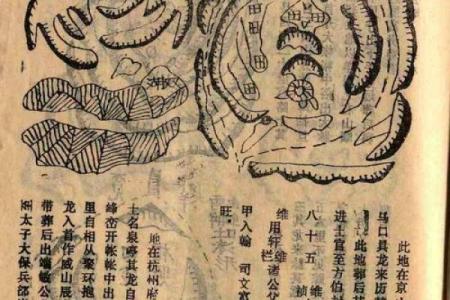 田
田
此地在京
马口具龙来历
此地葬后
进士官至方伯
八十五 祯
维用轩栏诸公
甲入翰 司文富
旺
地在杭州府
土名泉亭其龙自
开帐帐中出
里自相从聚环抱
龙入首作威山辰
带葬后出端敏公
太子大保兵部